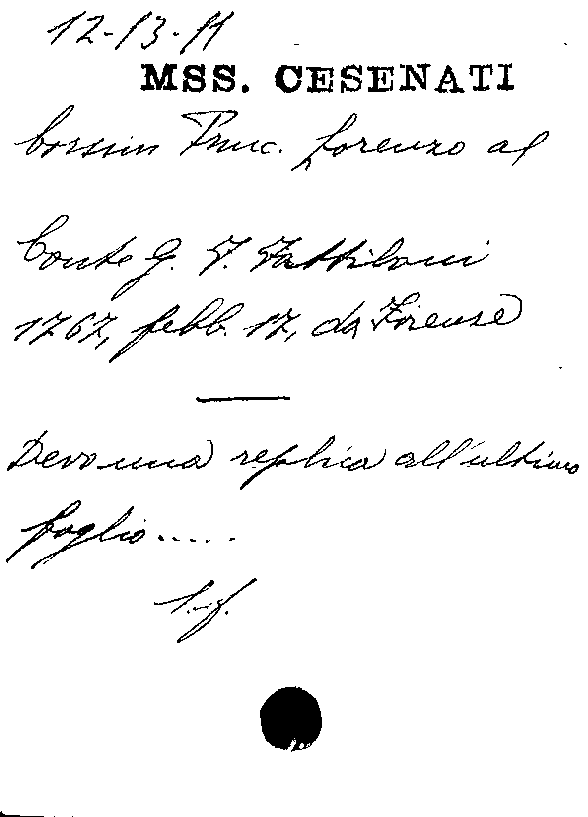 12-13-11
MSS. CESENATI
Corsini Princ. Lorenzo al
Conte G. F. Fattiboni
1767, febb. 17, da Firenze
Devo una replica all'ultimo
foglio.....
1.f.